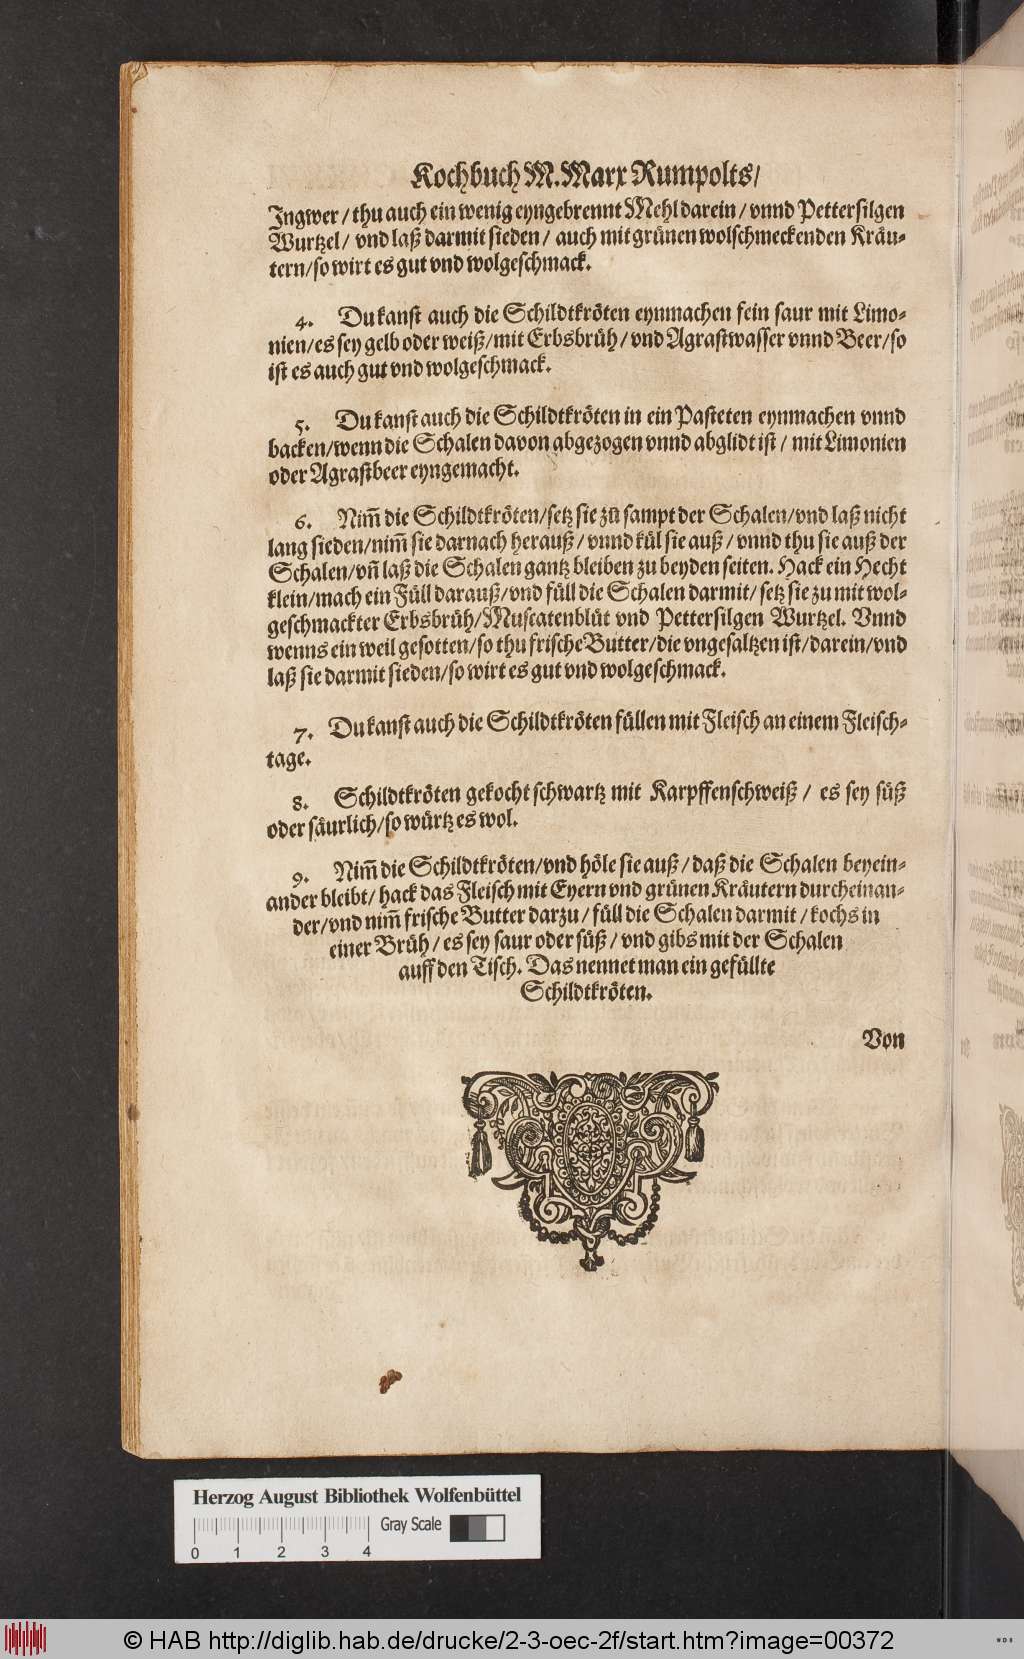 Kochbuch M. Marx Rumpolts/
Ingwer / thu auch ein wenig eyngebrennt Mehl darein / vnnd Pettersilgen
Wurtzel / vnd laß darmit sieden / auch mit grünen wolschmeckenden Kräu-
tern/so wirt es gut vnd wolgeschmack.
4. Du kanst auch die Schildtkröten eynmachen fein saur mit Limo-
nien/es sey gelb oder weiß/mit Erbsbrüh / vnd Agrastwasser vnnd Beer/so
ist es auch gut vnd wolgeschmack.
5. Du kanst auch die Schildtkröten in ein Pasteten eynmachen vnnd
backen/wenn die Schalen davon abgezogen vnnd abglidt ist / mit Limonien
oder Agrastbeer eyngemacht.
6. Nim̃ die Schildtkröten/setz sie zu sampt der Schalen/vnd laß nicht
lang sieden/nim̃ sie darnach herauß / vnnd kül sie auß / vnnd thu sie auß der
Schalen/vn̄ laß die Schalen gantz bleiben zu beyden seiten. Hack ein Hecht
klein/mach ein Füll darauß/vnd füll die Schalen darmit/ setz sie zu mit wol-
geschmackter Erbsbrüh/Muscatenblüt vnd Pettersilgen Wurtzel. Vnnd
wenns ein weil gesotten/so thu frische Butter/die vngesaltzen ist/darein/vnd
laß sie darmit sieden/so wirt es gut vnd wolgeschmack.
7. Du kanst auch die Schildtkröten füllen mit Fleisch an einem Fleisch-
tage.
8. Schildtkröten gekocht schwartz mit Karpffenschweiß / es sey süß
oder säurlich/so würtz es wol.
9. Nim̃ die Schildtkröten/vnd höle sie auß / daß die Schalen beyein-
ander bleibt/ hack das Fleisch mit Eyern vnd grünen Kräutern durcheinan-
der/vnd nim̃ frische Butter darzu / füll die Schalen darmit / kochs in
einer Brüh / es sey saur oder süß / vnd gibs mit der Schalen
auff den Tisch. Das nennet man ein gefüllte
Schildtkröten.
Von
Herzog August Bibliothek Wolfenbüttel
Gray Scale
0 1 2 3 4
© HAB http://diglib.hab.de/drucke/2-3-oec-2f/start.htm?image=00372